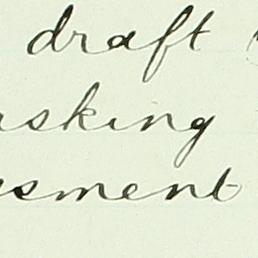 draft
asking
sment